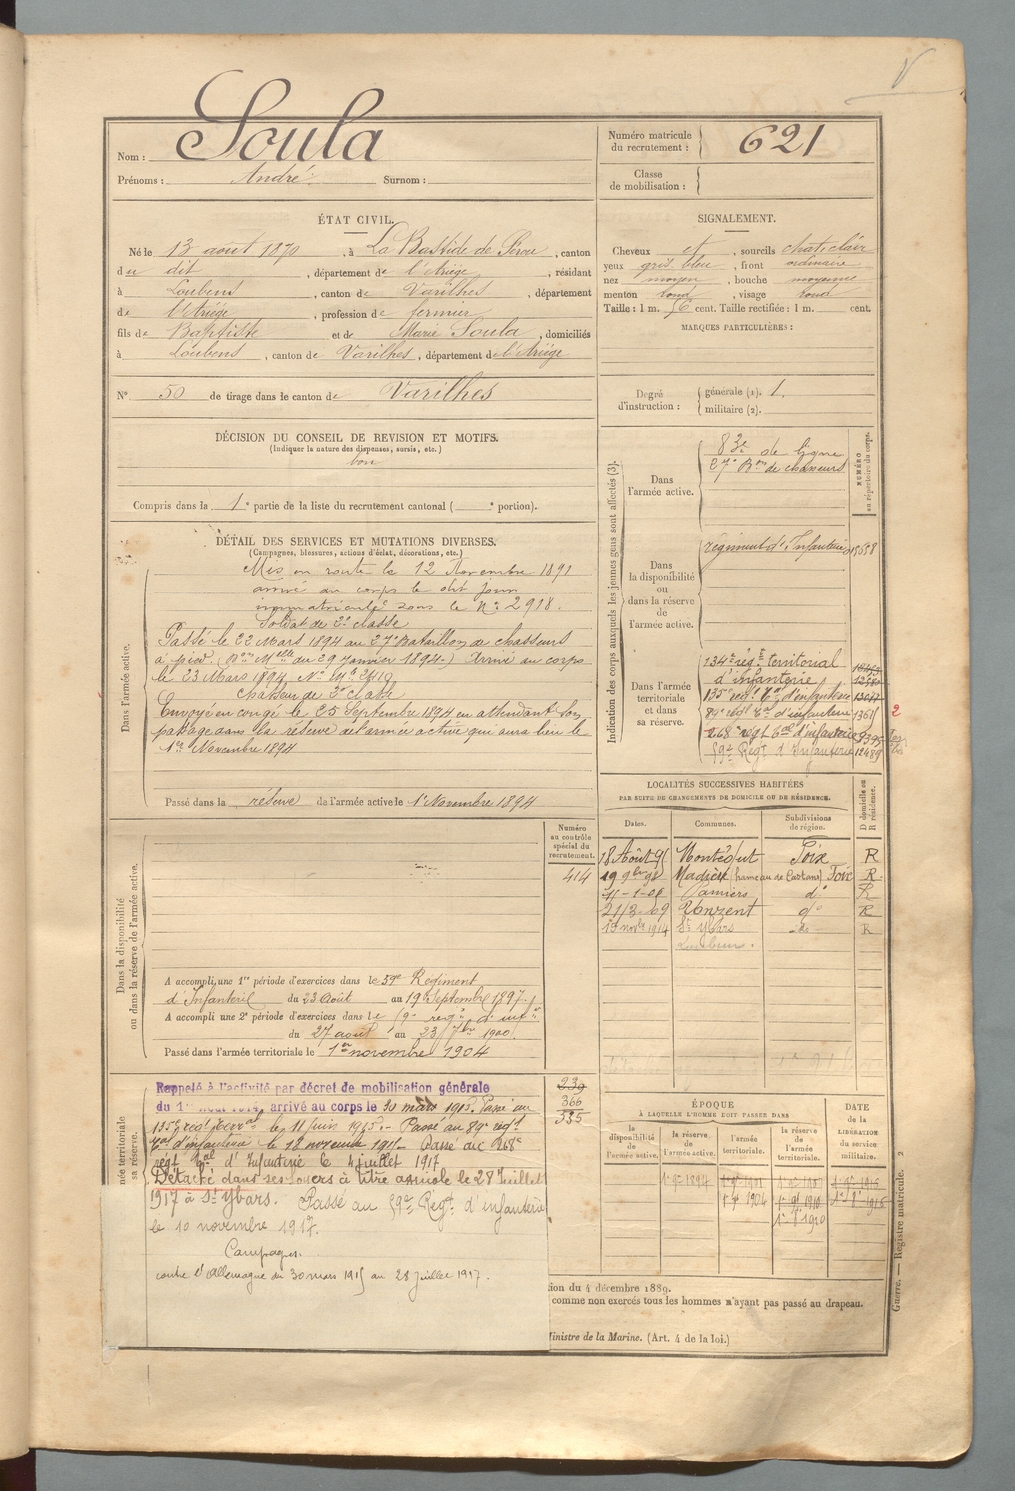 Nom : Soula
Prénoms : André Surnom :
Numéro matricule
du recrutement : 621
Classe
de mobilisation :
ÉTAT CIVIL.
Né le 13 août 1870, à La Bastide de Sérou, canton
du dit, département de l'Ariège, résidant
à Loubens, canton de Varilhes, département
de l'Ariège, profession de fermier
fils de Baptiste et de Marie Soula, domiciliés
à Loubens, canton de Varilhes, département de l'Ariège
N° 50 de tirage dans le canton de Varilhes
SIGNALEMENT.
Cheveux et, sourcils chat. clair
yeux gris bleu, front ordinaire
nez moyen, bouche moyenne
menton rond, visage rond
Taille : 1 m. 56 cent. Taille rectifiée : 1 m. cent.
MARQUES PARTICULIÈRES :
Degré
d'instruction :
générale (1). 1.
militaire (2).
DÉCISION DU CONSEIL DE REVISION ET MOTIFS.
(Indiquer la nature des dispenses, sursis, etc.)
bon
Compris dans la 1e partie de la liste du recrutement cantonal ( e portion).
DÉTAIL DES SERVICES ET MUTATIONS DIVERSES.
(Campagnes, blessures, actions d'éclat, décorations, etc.)
Dans l'armée active.
Mis en route le 12 Novembre 1891
arrivé au corps le dit jour
immatriculé sous le N° 2918.
Soldat de 2e classe
Passé le 22 Mars 1894 au 27e Bataillon de chasseurs
à pied. (Don Melle du 29 Janvier 1894.) Arrivé au corps
le 23 Mars 1894 N° Mle 2419
Chasseur de 2e classe
Envoyé en congé le 25 Septembre 1894 en attendant son
passage dans la réserve de l'armée active qui aura lieu le
1er Novembre 1894
Passé dans la réserve de l'armée active le 1er Novembre 1894
Indication des corps auxquels les jeunes gens sont affectés (3).
NUMÉRO
au répertoire du corps.
Dans
l'armée active.
83e de ligne
27e Bon de chasseurs
Dans
la disponibilité
ou
dans la réserve
de
l'armée active.
régiment d'Infanterie
Dans l'armée
territoriale
et dans
sa réserve.
134e rég. territorial
d'infanterie
135e reg. Tal d'infanterie
89e regt Tal d'infanterie 1361 2
268e regt Tal d'infanterie
59e Regt d'Infanterie 12489
LOCALITÉS SUCCESSIVES HABITÉES
PAR SUITE DE CHANGEMENTS DE DOMICILE OU DE RÉSIDENCE.
Dates. Communes. Subdivisions
de région. D domicile ou
R résidence.
18 Août 95 Montégut Foix R
19 9bre 98 Madière (hameau de Carlans) Foix R
11-1-06 Pamiers do R
21/3-09 do R
15 novre 1914 St Ybars do R
Loubens.
Dans la disponibilité
ou dans la réserve de l'armée active.
Numéro
au contrôle
spécial du
recrutement.
414
A accompli une 1re période d'exercices dans le 59e Régiment
d'Infanterie du 23 Août au 19 Septembre 1897.
A accompli une 2e période d'exercices dans le 59e regt d'infie
du 27 août au 23 7bre 1900.
Passé dans l'armée territoriale le 1er novembre 1904
239
366
535
Rappelé à l'activité par décret de mobilisation générale
du 1er Août 1914, arrivé au corps le 30 mars 1915. Passé au
135e régt terral le 11 juin 1915. - Passé au 89e régt
tal d'infanterie le 18 novembre 1915. Passé au 268e
régt tal d'Infanterie le 4 juillet 1917
Détaché dans ses foyers à titre agricole le 28 Juillet
1917 à St Ybars. Passé au 59e Regt d'infanterie
le 10 novembre 1917.
Campagnes.
contre l'Allemagne du 30 mars 1915 au 28 juillet 1917.
ée territoriale
sa réserve.
ÉPOQUE
À LAQUELLE L'HOMME DOIT PASSER DANS
DATE
de la
LIBÉRATION
du service
militaire.
la
disponibilité
de
l'armée active.
la réserve
de
l'armée active.
l'armée
territoriale.
la réserve
de
l'armée
territoriale.
1er 9bre 1894
1er 9bre 1904 1er 9bre 1910
tion du 4 décembre 1889.
comme non exercés tous les hommes n'ayant pas passé au drapeau.
Ministre de la Marine. (Art. 4 de la loi.)
Guerre. — Registre matricule. 2